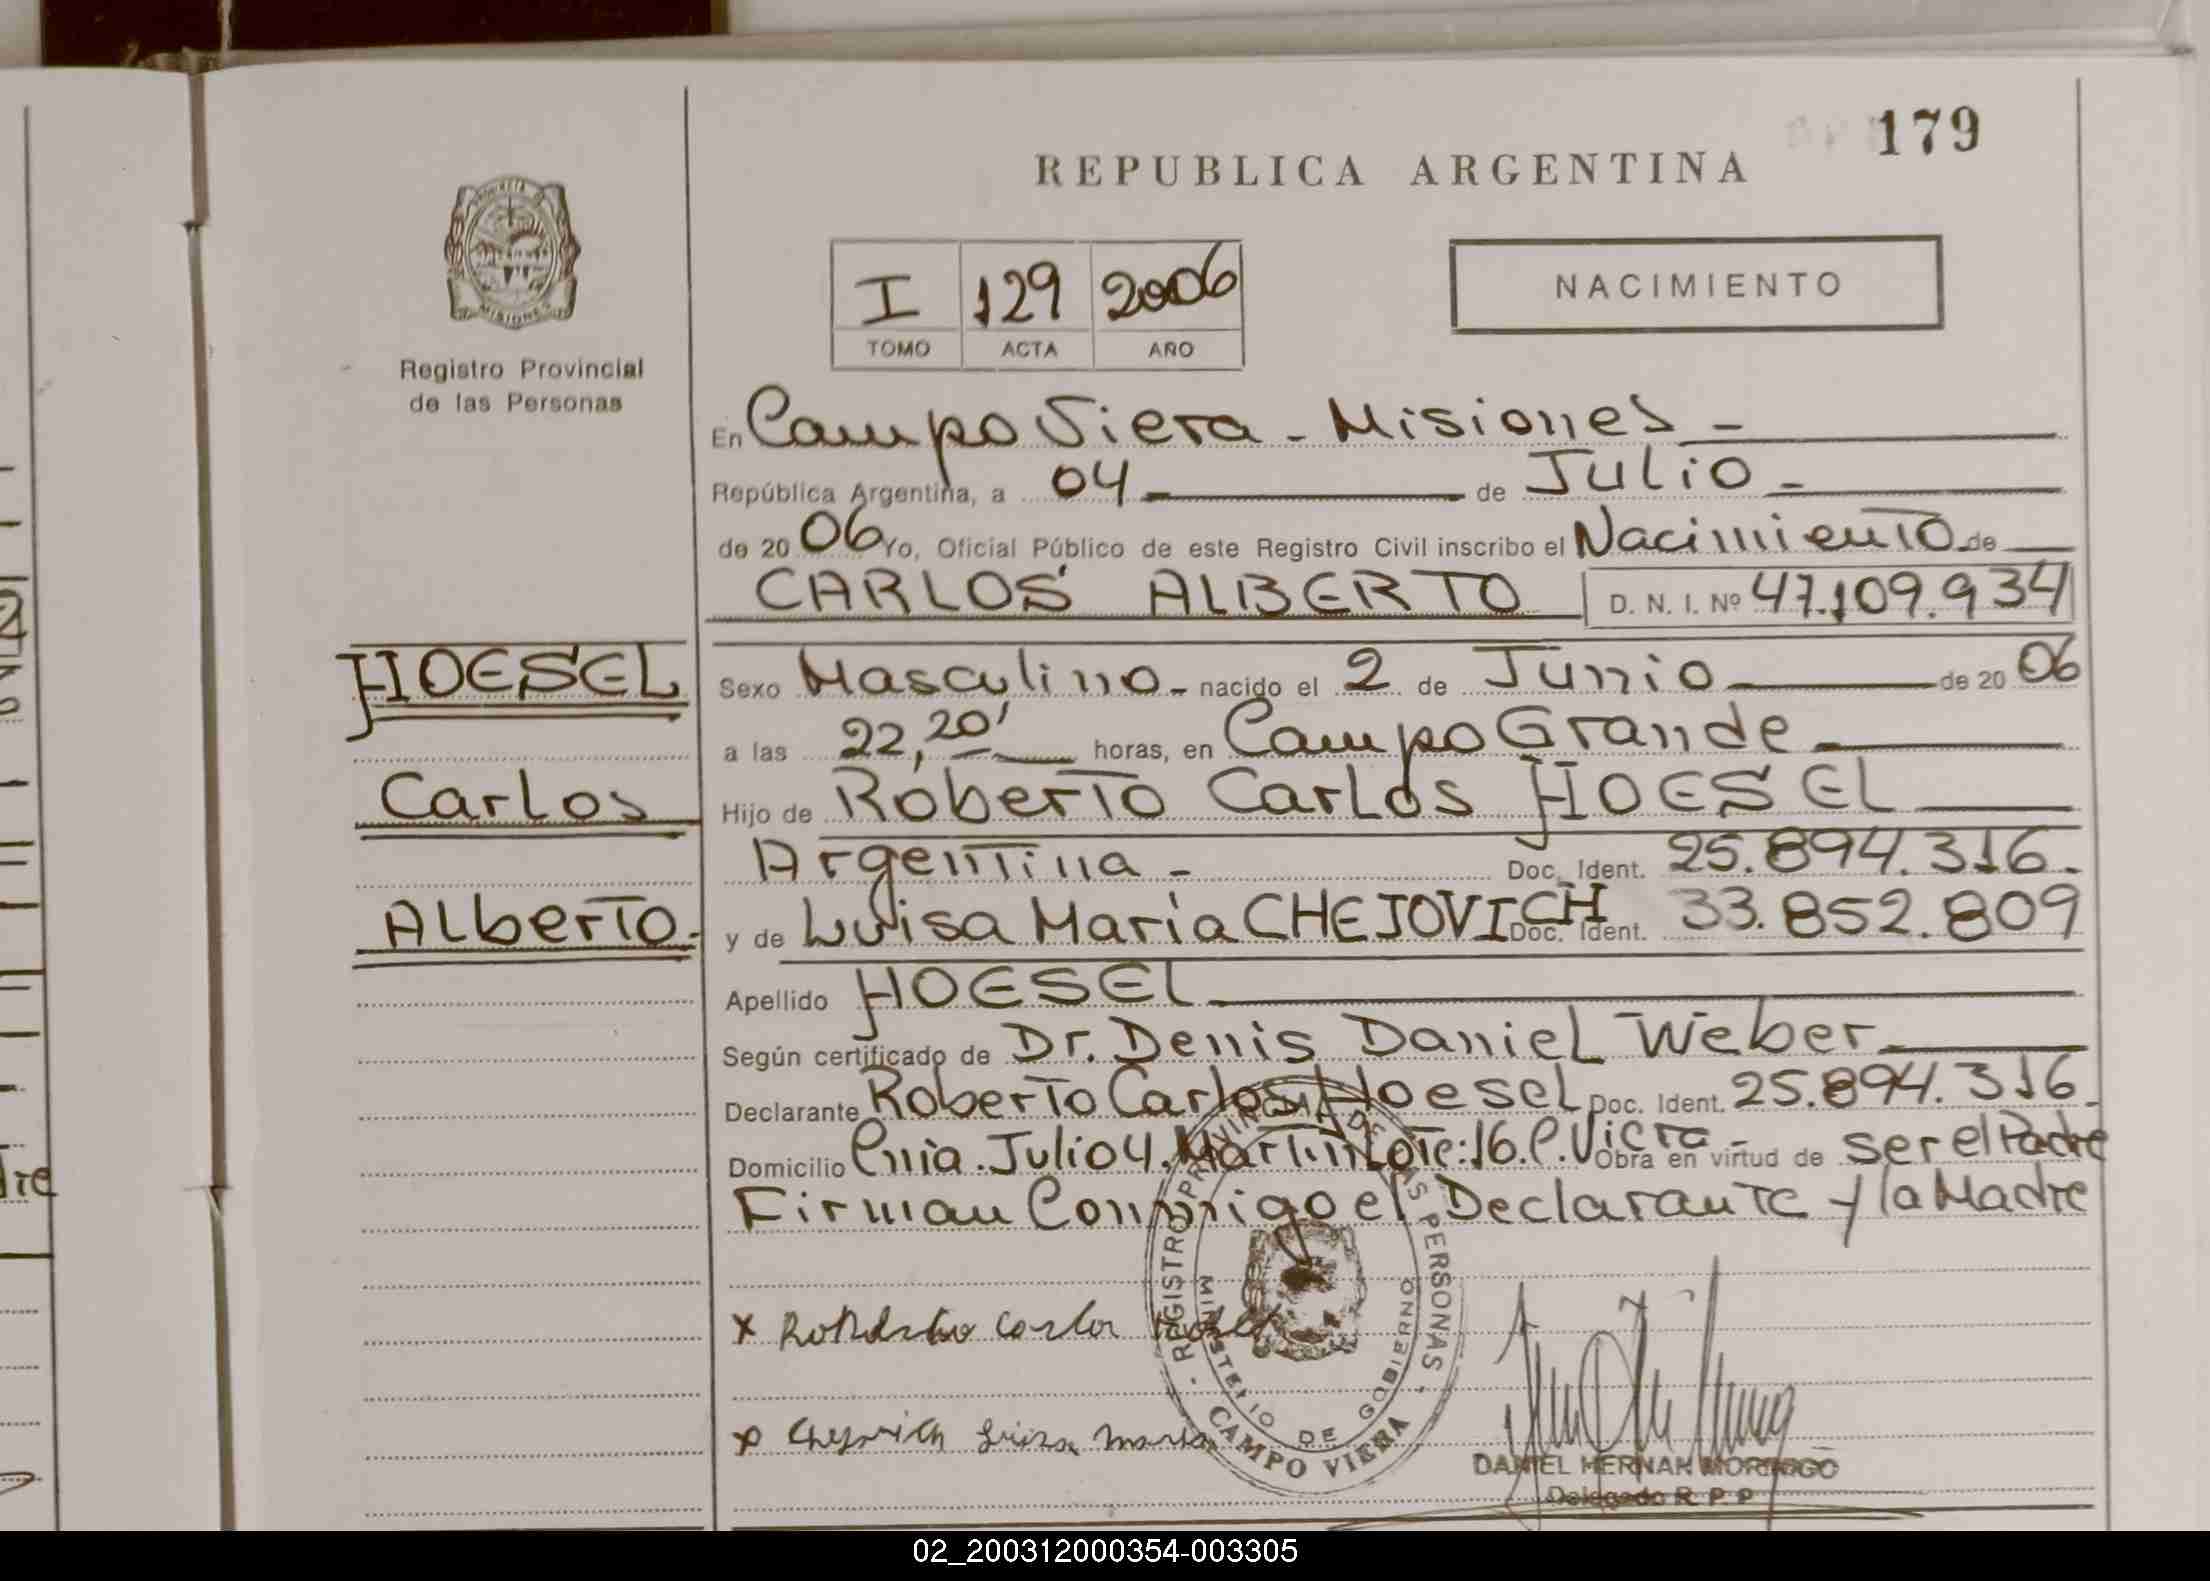 179
REPUBLICA ARGENTINA
NACIMIENTO
I 129 2006
TOMO ACTA AÑO
PROVINCIA DE MISIONES
Registro Provincial
de las Personas
En Campo Viera - Misiones -
República Argentina, a 04 de Julio -
de 2006 Yo, Oficial Público de este Registro Civil inscribo el Nacimiento de
CARLOS ALBERTO D. N. I. Nº 47.109.934
HOESEL
Carlos
Alberto.
Sexo Masculino - nacido el 2 de Junio de 2006
a las 22,20' horas, en Campo Grande -
Hijo de Roberto Carlos HOESEL
Argentina - Doc. Ident. 25.894.316.
y de Luisa Maria CHEJOVICH Doc. Ident. 33.852.809
Apellido HOESEL
Según certificado de Dr. Denis Daniel Weber
Declarante Roberto Carlos Hoesel Doc. Ident. 25.894.316.
Domicilio Cnia. Julio U. Martin Lote: 16. C. Viera - Obra en virtud de ser el Padre
Firman Conmigo el Declarante y la Madre
REGISTRO PROVINCIAL DE LAS PERSONAS
MINISTERIO DE GOBIERNO
CAMPO VIERA
x Carlos
x Luisa Maria
DANIEL HERNAN
Delegado R. P. P.
02_200312000354-003305